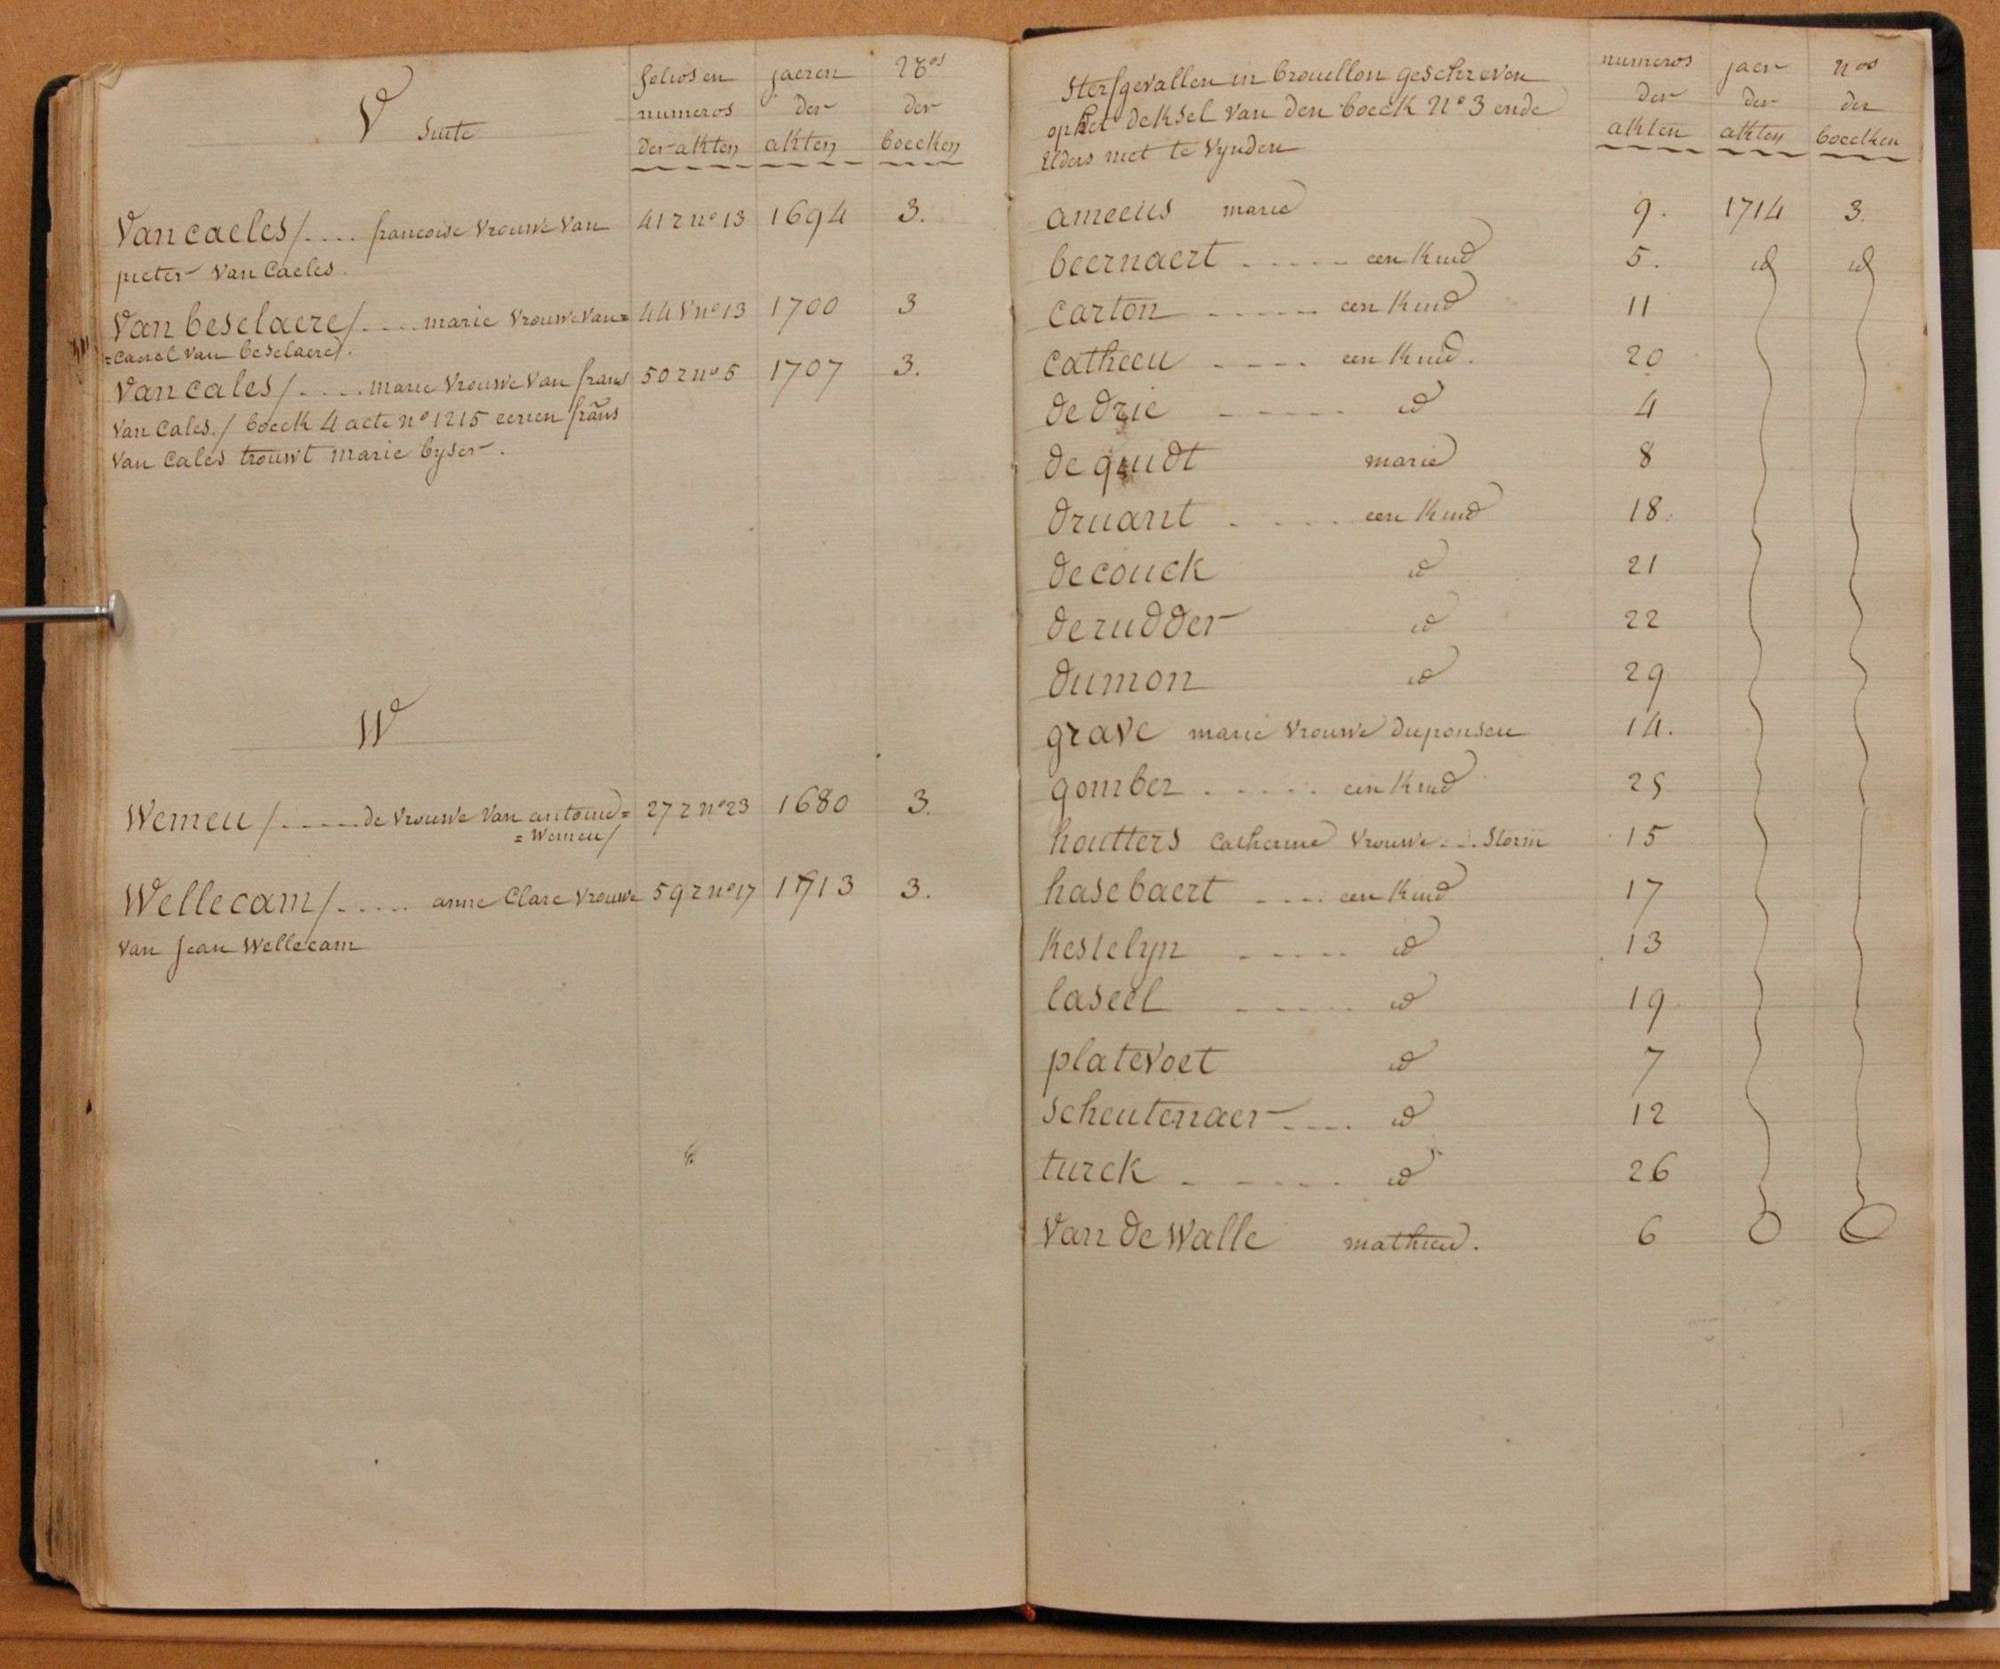 V suite
folios en numeros der akten
jaeren der akten
nos der boecken
Van caeles /.... francoise vrouwe van 41 r no 13 1694 3.
pieter van Caeles.
Van beselaere /.... marie vrouwe van= 44 v no 13 1700 3
=carel van beselaere/.
Van cales /..... marie vrouwe van frans 50 r no 5 1707 3.
van Cales./ boeck 4 acte no 1215 eenen frans
van Cales trouwt marie byser.
W
Wemeu /..... de vrouwe van antoine= 27 r no 23 1680 3.
= Wemeu/
Wellecam /..... anne Clare vrouwe 59 r no 17 1713 3.
van Jean Wellecam
Sterfgevallen in brouellon geschreven
op het deksel van den boeck No 3 ende
Elders niet te vynden
numeros der akten
jaer der akten
nos der boecken
ameeus marie 9. 1714 3.
beernaert ..... een kind 5. id id
carton ...... een kind 11
catheeu .... een kind. 20
de drie ..... id 4
de quidt marie 8
druant .... een kind 18.
decouck id 21
derudder id 22
dumon id 29
grave marie vrouwe duponseu 14.
gomber ..... een kind 25
houtters catherine vrouwe ... Storm 15
hasebaert .... een kind 17
Kestelyn ..... id 13
laseel ..... id 19
platevoet id 7
scheutenaer .... id 12
turck ...... id 26
Van de Walle mathieu. 6